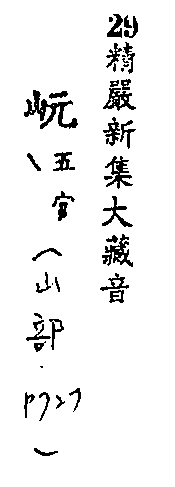 29精嚴新集大藏音
岏、五官（山部．P727）